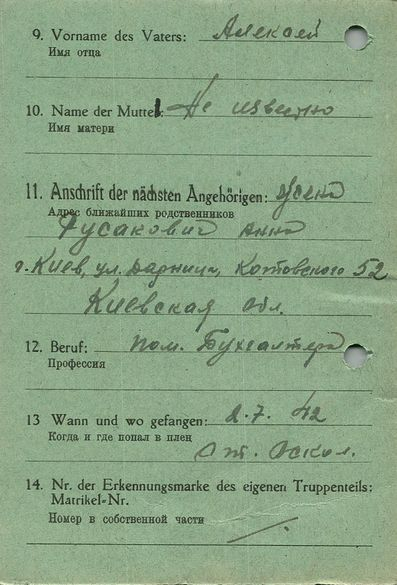 9. Vorname des Vaters: Алексей
Имя отца
10. Name der Mutter: Не известно
Имя матери
11. Anschrift der nächsten Angehörigen: жена
Адрес ближайших родственников
Русакович Анна
г. Киев, ул. Дарница, Котовского 52
Киевская обл.
12. Beruf: пом. Бухгалтера
Профессия
13 Wann und wo gefangen: 2.7.42
Когда и где попал в плен
Ст. Оскол.
14. Nr. der Erkennungsmarke des eigenen Truppenteils:
Matrikel-Nr.
Номер в собственной части